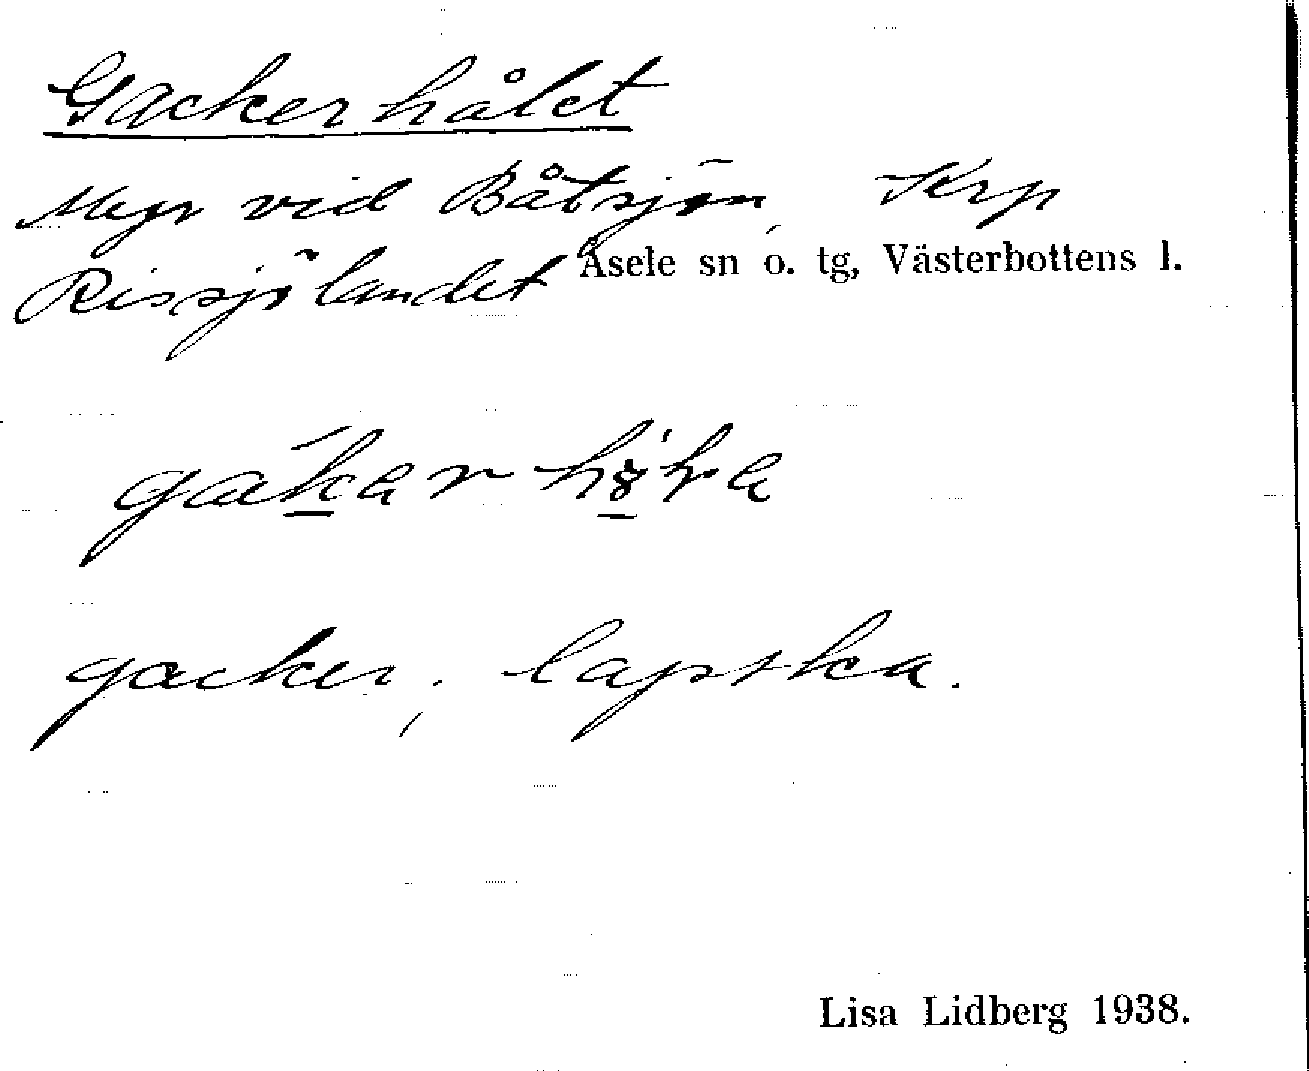 Gackerhålet
Myr vid Båtsjön, Krp
Rissjölandet Åsele sn o. tg, Västerbottens l.
gacker, lapska.
Lisa Lidberg 1938.